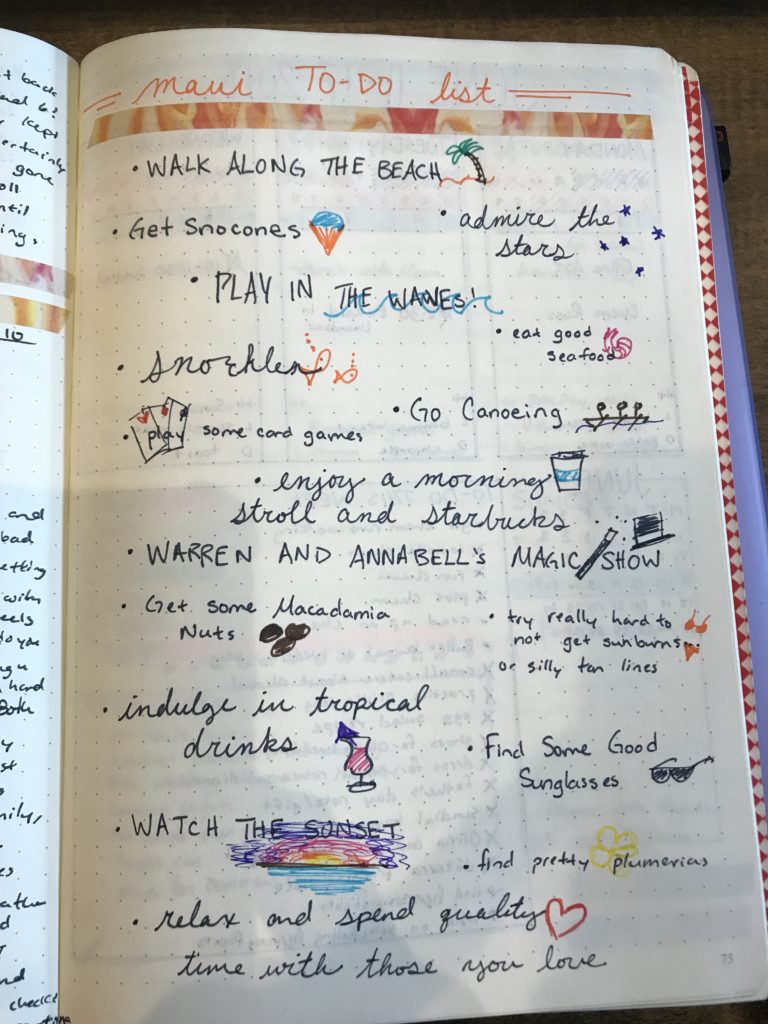 maui TO-DO list
• WALK ALONG THE BEACH
• Get Snocones
• admire the
stars
• PLAY IN THE WAVES!
• eat good
seafood
• snorklen
• play some card games
• Go Canoeing
• enjoy a morning
stroll and starbucks
• WARREN AND ANNABELL's MAGIC SHOW
• Get some Macadamia
Nuts
• try really hard to
not get sunburns...
or silly tan lines
• indulge in tropical
drinks
• Find Some Good
Sunglasses
• WATCH THE SUNSET
• find pretty plumerias
• relax and spend quality
time with those you love
75
t back
kept
certainly
gone
until
10
and
bad
etting
with
eels
to you
hard
Both
mily,